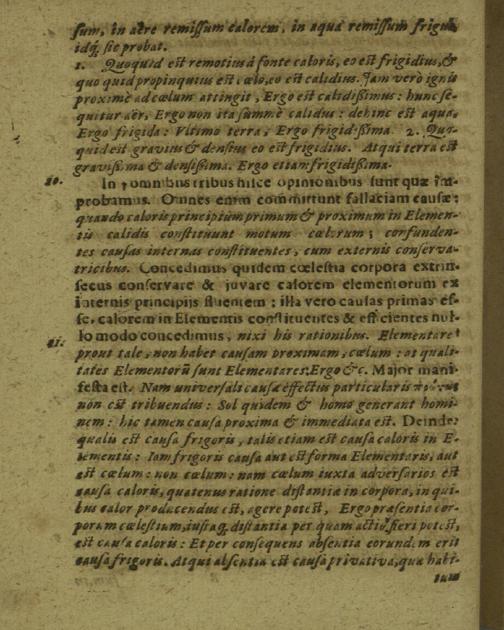 sum, in aëre remissum calorem, in aqua remissum frigus,
idq́; sic probat.
1. Quoquid est remotius à fonte caloris, eo est frigidius, &
quo quid propinquius est, cœlo, eo est calidius. Jam verò ignis
proximè ad cœlum attingit, Ergo est calidißimus: hunc se-
quitur aër, Ergo non ita summè calidus: dehinc est aqua,
Ergo frigida: Vltimo terra, Ergo frigidißima. 2. Quo-
quid est gravius & densius eo est frigidius. Atqui terra est
gravißima & densißima. Ergo etiam frigidißima.
20. In omnibus tribus hisce opinionibus sunt quæ im-
probamus. Omnes enim committunt fallaciam causæ:
quando caloris principium primum & proximum in Elemen-
tis calidis constituunt motum cœlorum; confunden-
tes causas internas constituentes, cum externis conserva-
tricibus. Concedimus quidem cœlestia corpora extrin-
secus conservare & juvare calorem elementorum ex
internis principijs fluentem: illa vero causas primas es-
se, calorem in Elementis constituentes & efficientes nul-
lo modo concedimus, nixi his rationibus. Elementare
21. prout tale, non habet causam proximam, cœlum: at quali-
tates Elementorũ sunt Elementares: Ergo &c. Major mani
festa est. Nam universalis causæ effectus particularis
non est tribuendus: Sol quidem & homo generant homi-
nem: hic tamen causa proxima & immediata est. Deinde:
qualis est causa frigoris, talis etiam est causa caloris in E-
lementis: Iam frigoris causa aut est forma Elementaris, aut
est cœlum: non cœlum: nam cœlum iuxta adversarios est
causa caloris, quatenus ratione distantiæ in corpora, in qui-
bus calor producendus est, agere potest, Ergo præsentia cor-
porum cœlestium, iustaq́; distantia per quam actio fieri potest,
est causa caloris: Et per consequens absentia eorundem erit
causa frigoris. Atqui absentia est causa privativa, quæ habi-
tum